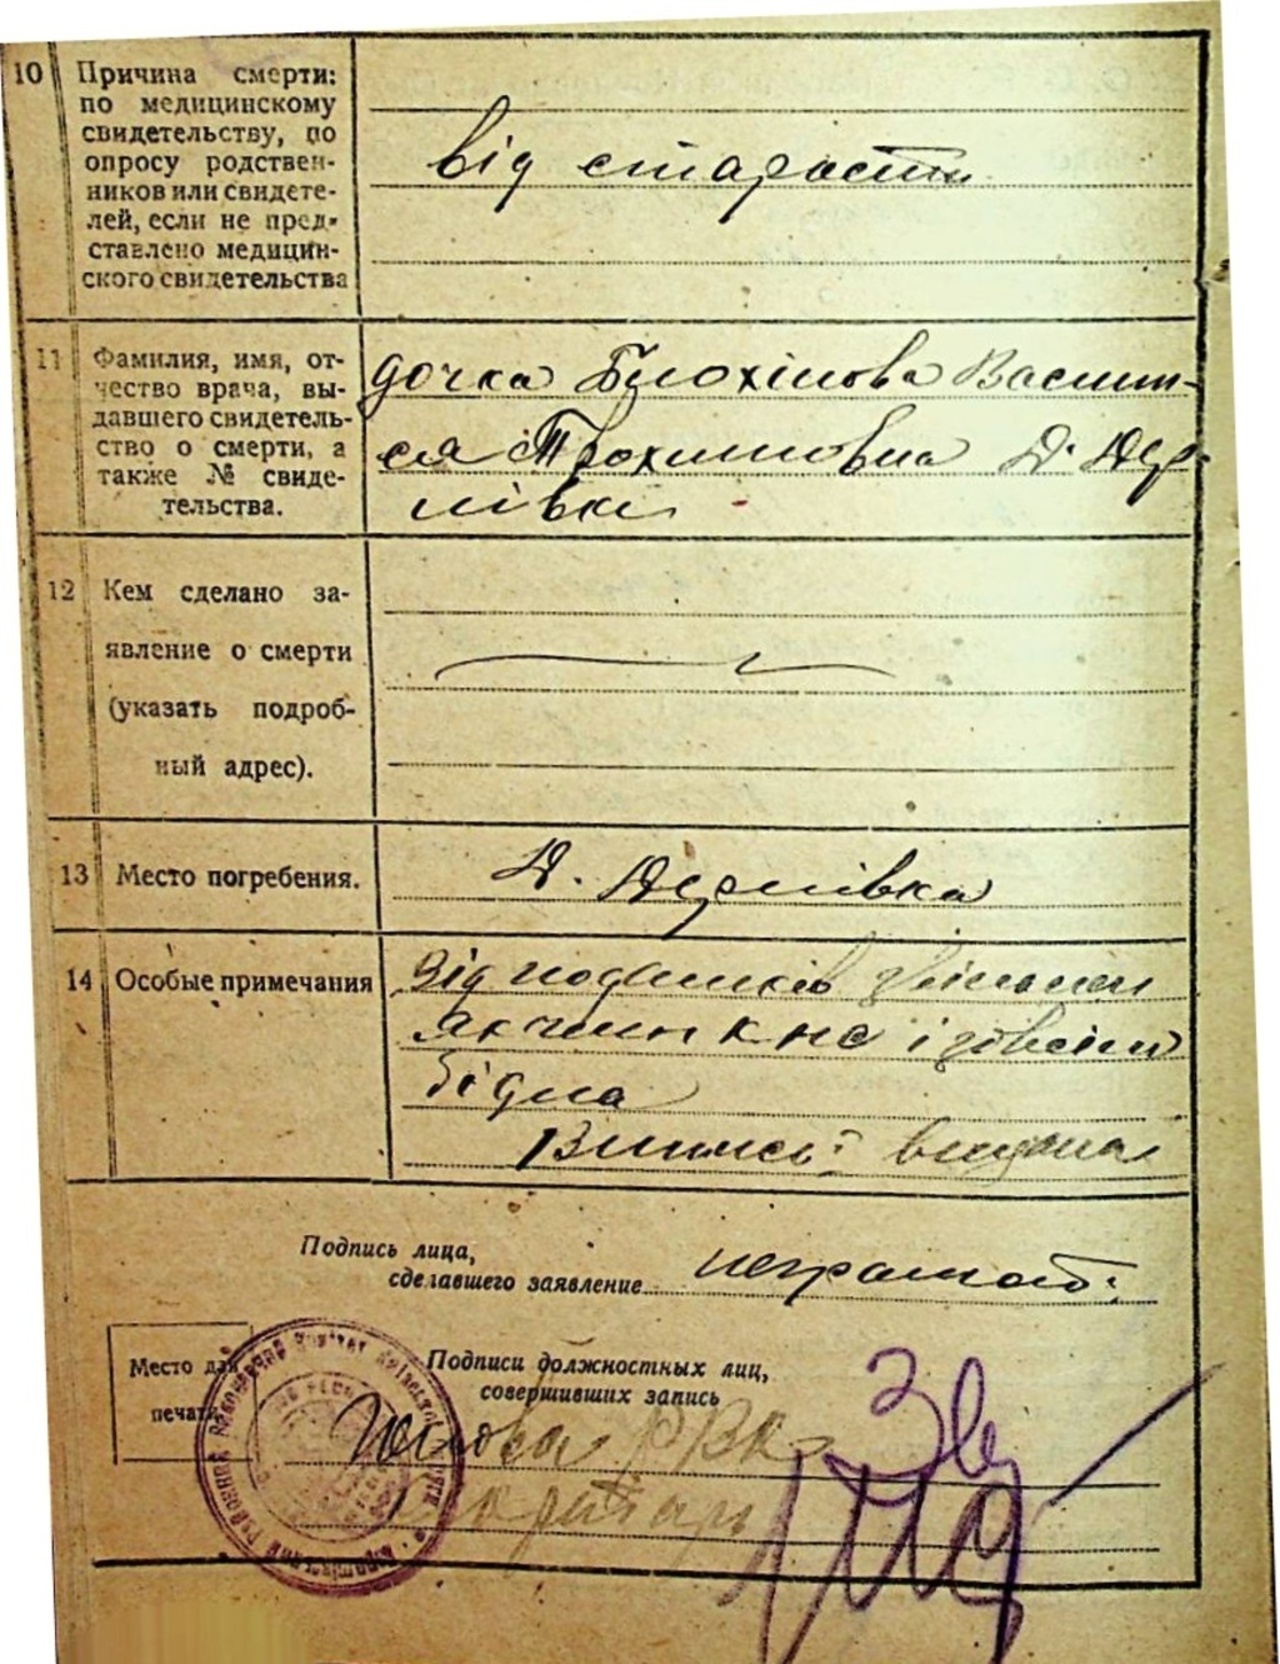 10 Причина смерти:
по медицинскому
свидетельству, по
опросу родствен-
ников или свидете-
лей, если не пред-
ставлено медицин-
ского свидетельства
від старости
11 Фамилия, имя, от-
чество врача, вы-
давшего свидетель-
ство о смерти, а
также № свиде-
тельства.
дочка Васили-
са Трохимовна Д.
лівка
12 Кем сделано за-
явление о смерти
(указать подроб-
ный адрес).
13 Место погребения.
Д.
14 Особые примечания
Від
як член КНС і зовсім
бідна
Випись: видана
Подпись лица,
сделавшего заявление неграмот:
Место для
печати
Подписи должностных лиц,
совершивших запись
Голова РВК
Секритарь